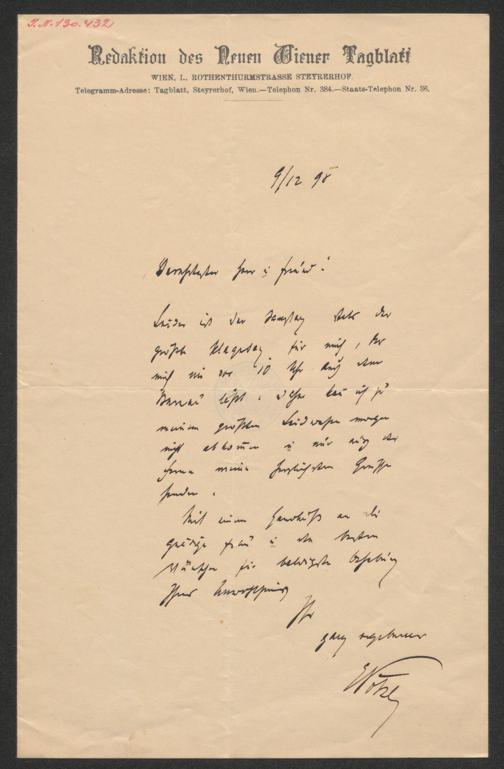 I.N. 130.432
Redaktion des Neuen Wiener Tagblatt
WIEN, I., ROTHENTHURMSTRASSE STEYRERHOF.
Telegramm-Adresse: Tagblatt, Steyrerhof, Wien.—Telephon Nr. 384.—Staats-Telephon Nr. 36.
9/12 98
Verehrtester Herr u Freund!
Leider ist der Samstag stets der
größte Plagetag für mich, der
mich nie vor 10 Uhr aus dem
Bureau läßt. Daher kann ich zu
meinem größten Leidwesen morgen
nicht abkommen u nur aus der
Ferne meine herzlichsten Grüße
senden.
Mit einem Handkuß an die
gnädige Frau u den besten
Wünschen für baldigste Behebung
Ihres Unwohlseins
Ihr
ganz ergebener
EPötzl